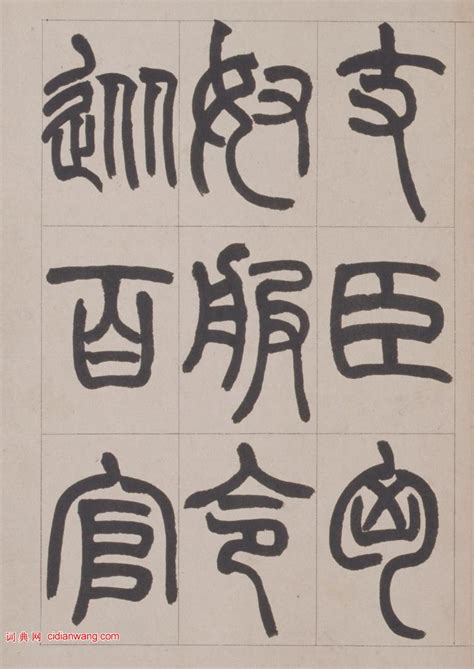 支臣匈
奴服令
從百官
词典网 cidianwang.com